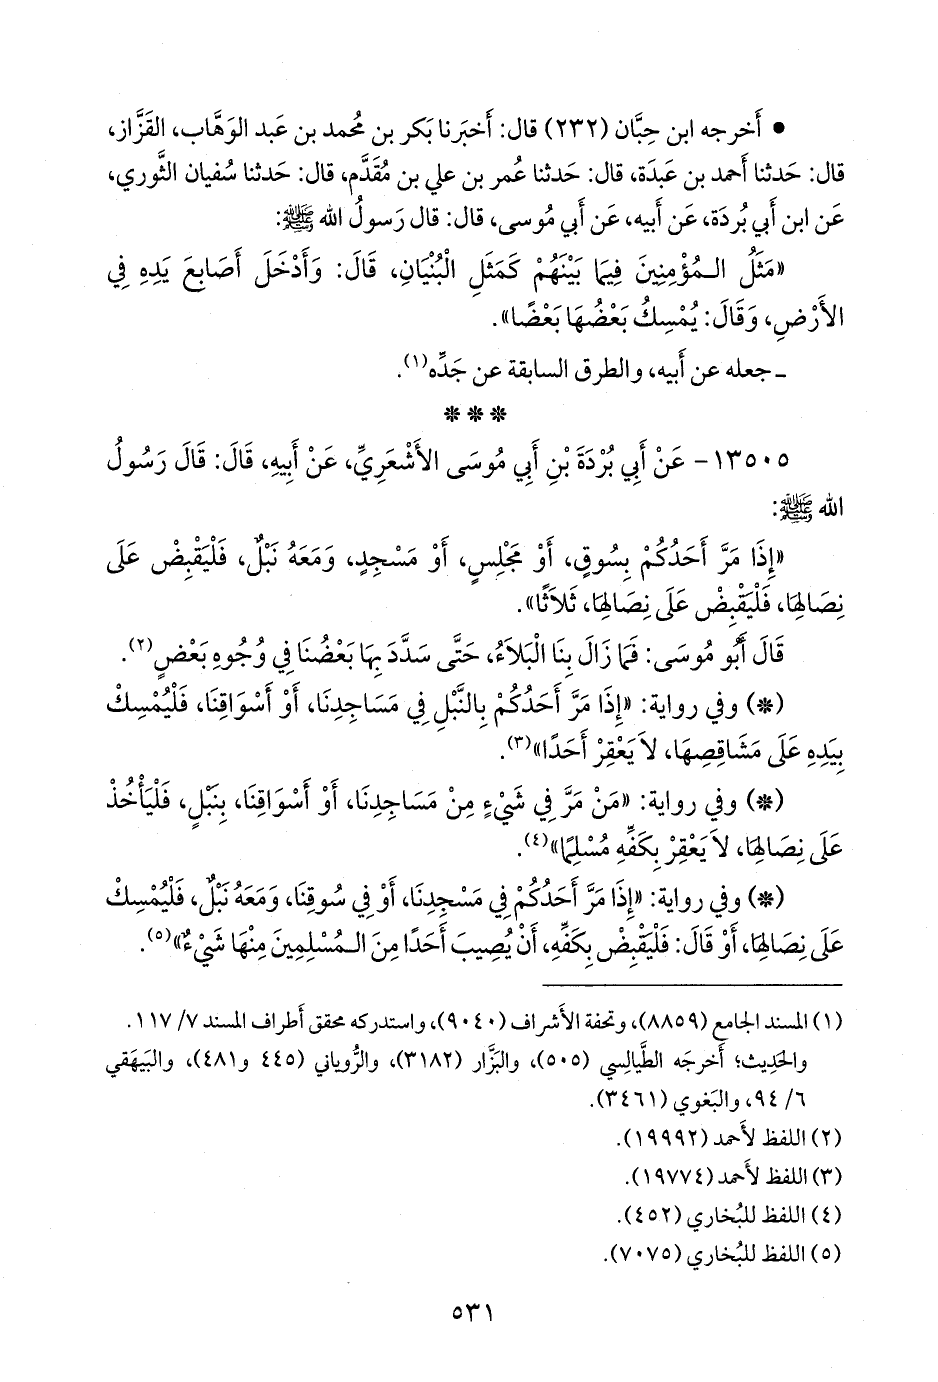 • أَخرجه ابن حِبَّان (٢٣٢) قال: أَخبَرنا بَكر بن مُحمد بن عَبد الوَهَّاب، القَزَّاز،
قال: حَدثنا أَحمد بن عَبدَة، قال: حَدثنا عُمر بن علي بن مُقَدَّم، قال: حَدثنا سُفيان الثَّوري،
عَن ابن أَبي بُردَة، عَن أَبيه، عَن أَبي مُوسى، قال: قال رَسولُ الله ﷺ:
«مَثَلُ الـمُؤْمِنِينَ فِيمَا بَيْنَهُمْ كَمَثَلِ الْبُنْيَانِ، قَالَ: وَأَدْخَلَ أَصَابِعَ يَدِهِ فِي
الأَرْضِ، وَقَالَ: يُمْسِكُ بَعْضُهَا بَعْضًا».
ـ جعله عن أَبيه، والطرق السابقة عن جَدِّه(١).
* * *
١٣٥٠٥- عَنْ أَبِي بُرْدَةَ بْنِ أَبِي مُوسَى الأَشْعَرِيِّ، عَنْ أَبِيهِ، قَالَ: قَالَ رَسُولُ
الله ﷺ:
«إِذَا مَرَّ أَحَدُكُمْ بِسُوقٍ، أَوْ مَجْلِسٍ، أَوْ مَسْجِدٍ، وَمَعَهُ نَبْلٌ، فَلْيَقْبِضْ عَلَى
نِصَالِهَا، فَلْيَقْبِضْ عَلَى نِصَالِهَا، ثَلاَثًا».
قَالَ أَبُو مُوسَى: فَمَا زَالَ بِنَا الْبَلاَءُ، حَتَّى سَدَّدَ بِهَا بَعْضُنَا فِي وُجُوهِ بَعْضٍ(٢).
(*) وفي رواية: «إِذَا مَرَّ أَحَدُكُمْ بِالنَّبْلِ فِي مَسَاجِدِنَا، أَوْ أَسْوَاقِنَا، فَلْيُمْسِكْ
بِيَدِهِ عَلَى مَشَاقِصِهَا، لاَ يَعْقِرْ أَحَدًا»(٣).
(*) وفي رواية: «مَنْ مَرَّ فِي شَيْءٍ مِنْ مَسَاجِدِنَا، أَوْ أَسْوَاقِنَا، بِنَبْلٍ، فَلْيَأْخُذْ
عَلَى نِصَالِهَا، لاَ يَعْقِرْ بِكَفِّهِ مُسْلِمًا»(٤).
(*) وفي رواية: «إِذَا مَرَّ أَحَدُكُمْ فِي مَسْجِدِنَا، أَوْ فِي سُوقِنَا، وَمَعَهُ نَبْلٌ، فَلْيُمْسِكْ
عَلَى نِصَالِهَا، أَوْ قَالَ: فَلْيَقْبِضْ بِكَفِّهِ، أَنْ يُصِيبَ أَحَدًا مِنَ الـمُسْلِمِينَ مِنْهَا شَيْءٌ»(٥).
(١) المسند الجامع (٨٨٥٩)، وتحفة الأَشراف (٩٠٤٠)، واستدركه محقق أَطراف المسند ٧/ ١١٧.
والحَدِيث؛ أَخرجَه الطَّيالِسي (٥٠٥)، والبَزَّار (٣١٨٢)، والرُّوياني (٤٤٥ و٤٨١)، والبَيهَقي
٦/ ٩٤، والبَغوي (٣٤٦١).
(٢) اللفظ لأَحمد (١٩٩٩٢).
(٣) اللفظ لأَحمد (١٩٧٧٤).
(٤) اللفظ للبُخاري (٤٥٢).
(٥) اللفظ للبُخاري (٧٠٧٥).
٥٣١